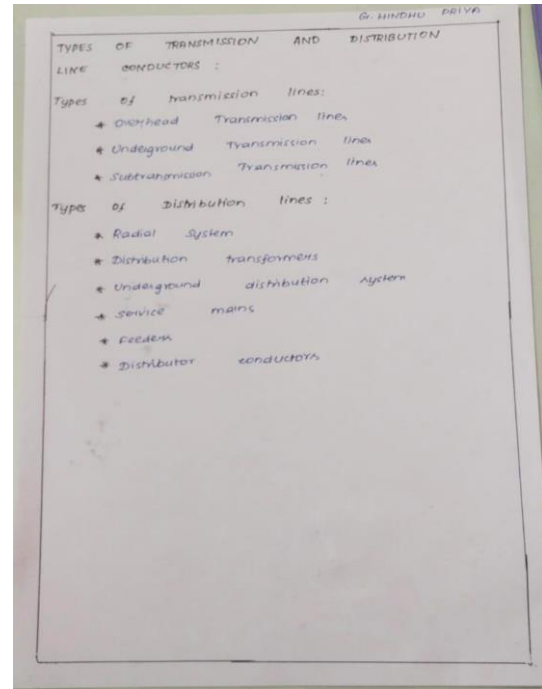 G. HINDHU PRIYA
TYPES OF TRANSMISSION AND DISTRIBUTION
LINE CONDUCTORS :
Types of transmission lines:
* Overhead Transmission lines
* Underground Transmission lines
* Subtransmission Transmission lines
Types of Distribution lines :
* Radial System
* Distribution transformers
* Underground distribution system
* Service mains
* Feeders
* Distributor conductors